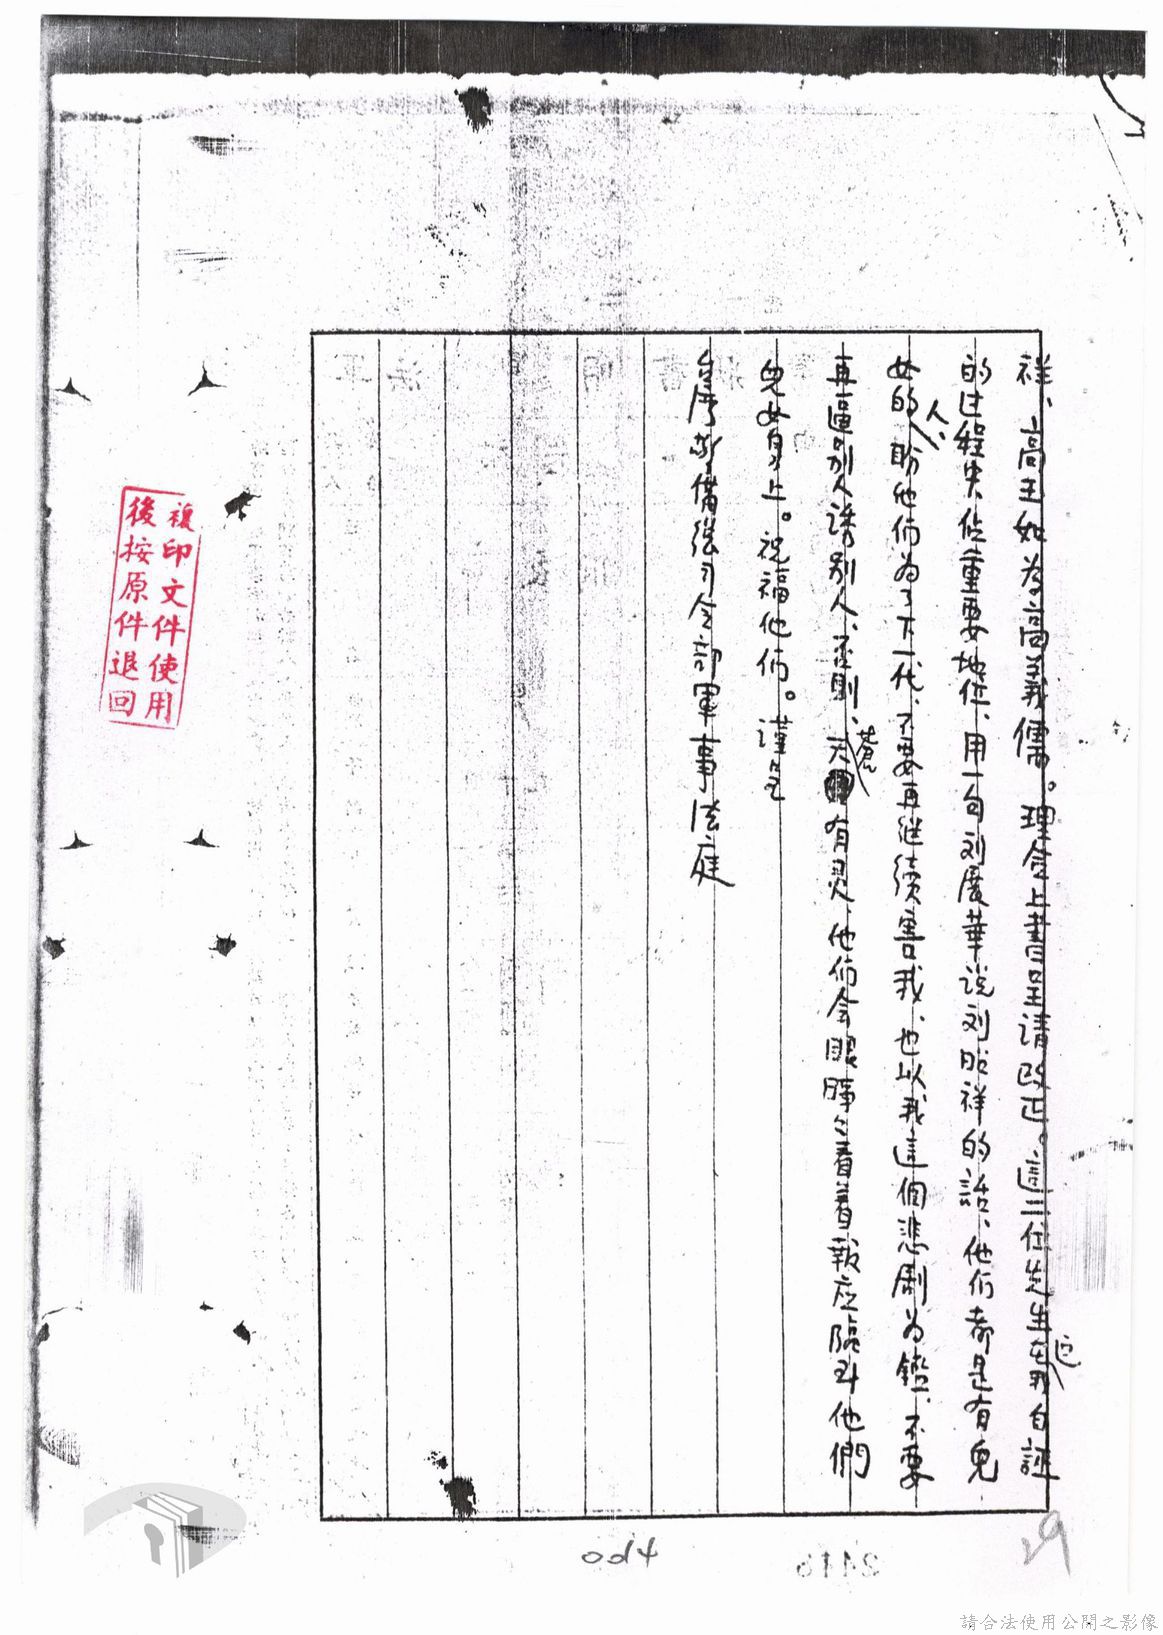 祥、高玉如為高義儒。理合上書呈請改正。這三位先生在我這自誣
的过程中、佔重要地位、用一句刘展華说刘昭祥的話、他们都是有兒
女的人、盼他们為了下一代、不要再继续害我、也以我這個悲劇为鑑、不要
再逼別人誘別人、否則、蒼天有灵、他们会眼睁々看着報应臨到他們
兒女身上。祝福他们。谨呈
台湾警備総司令部軍事法庭
複印文件使用
後按原件退回
29
請合法使用公開之影像